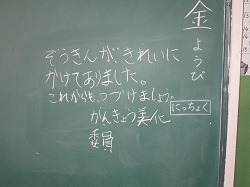 金ようび
ぞうきんが、きれいに
かけてありました。
これからも、つづけましょう。
がんきょう美化
委員
にっちょく